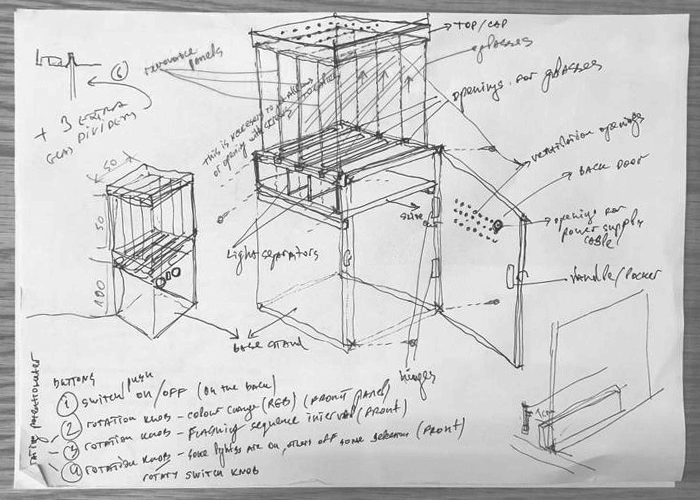 TOP/CAP
removable panels
glasses
openings for glasses
6
+ 3 EXTRA
GLASS DIVIDERS
this is
ventilation openings
BACK DOOR
50
50
100
openings for
power supply
cable
Light separators
Handle/Locker
BASE STAND
hinges
1cm
BUTTONS
① SWITCH/PUSH ON/OFF (ON THE BACK)
② ROTATION KNOB - COLOUR CHANGE (RGB) (FRONT PANEL)
③ ROTATION KNOB - FLASHING SEQUENCE INTERVAL (FRONT)
④ ROTATION KNOB - some lights are on, others off some (FRONT)
ROTARY SWITCH KNOB
potentiometer